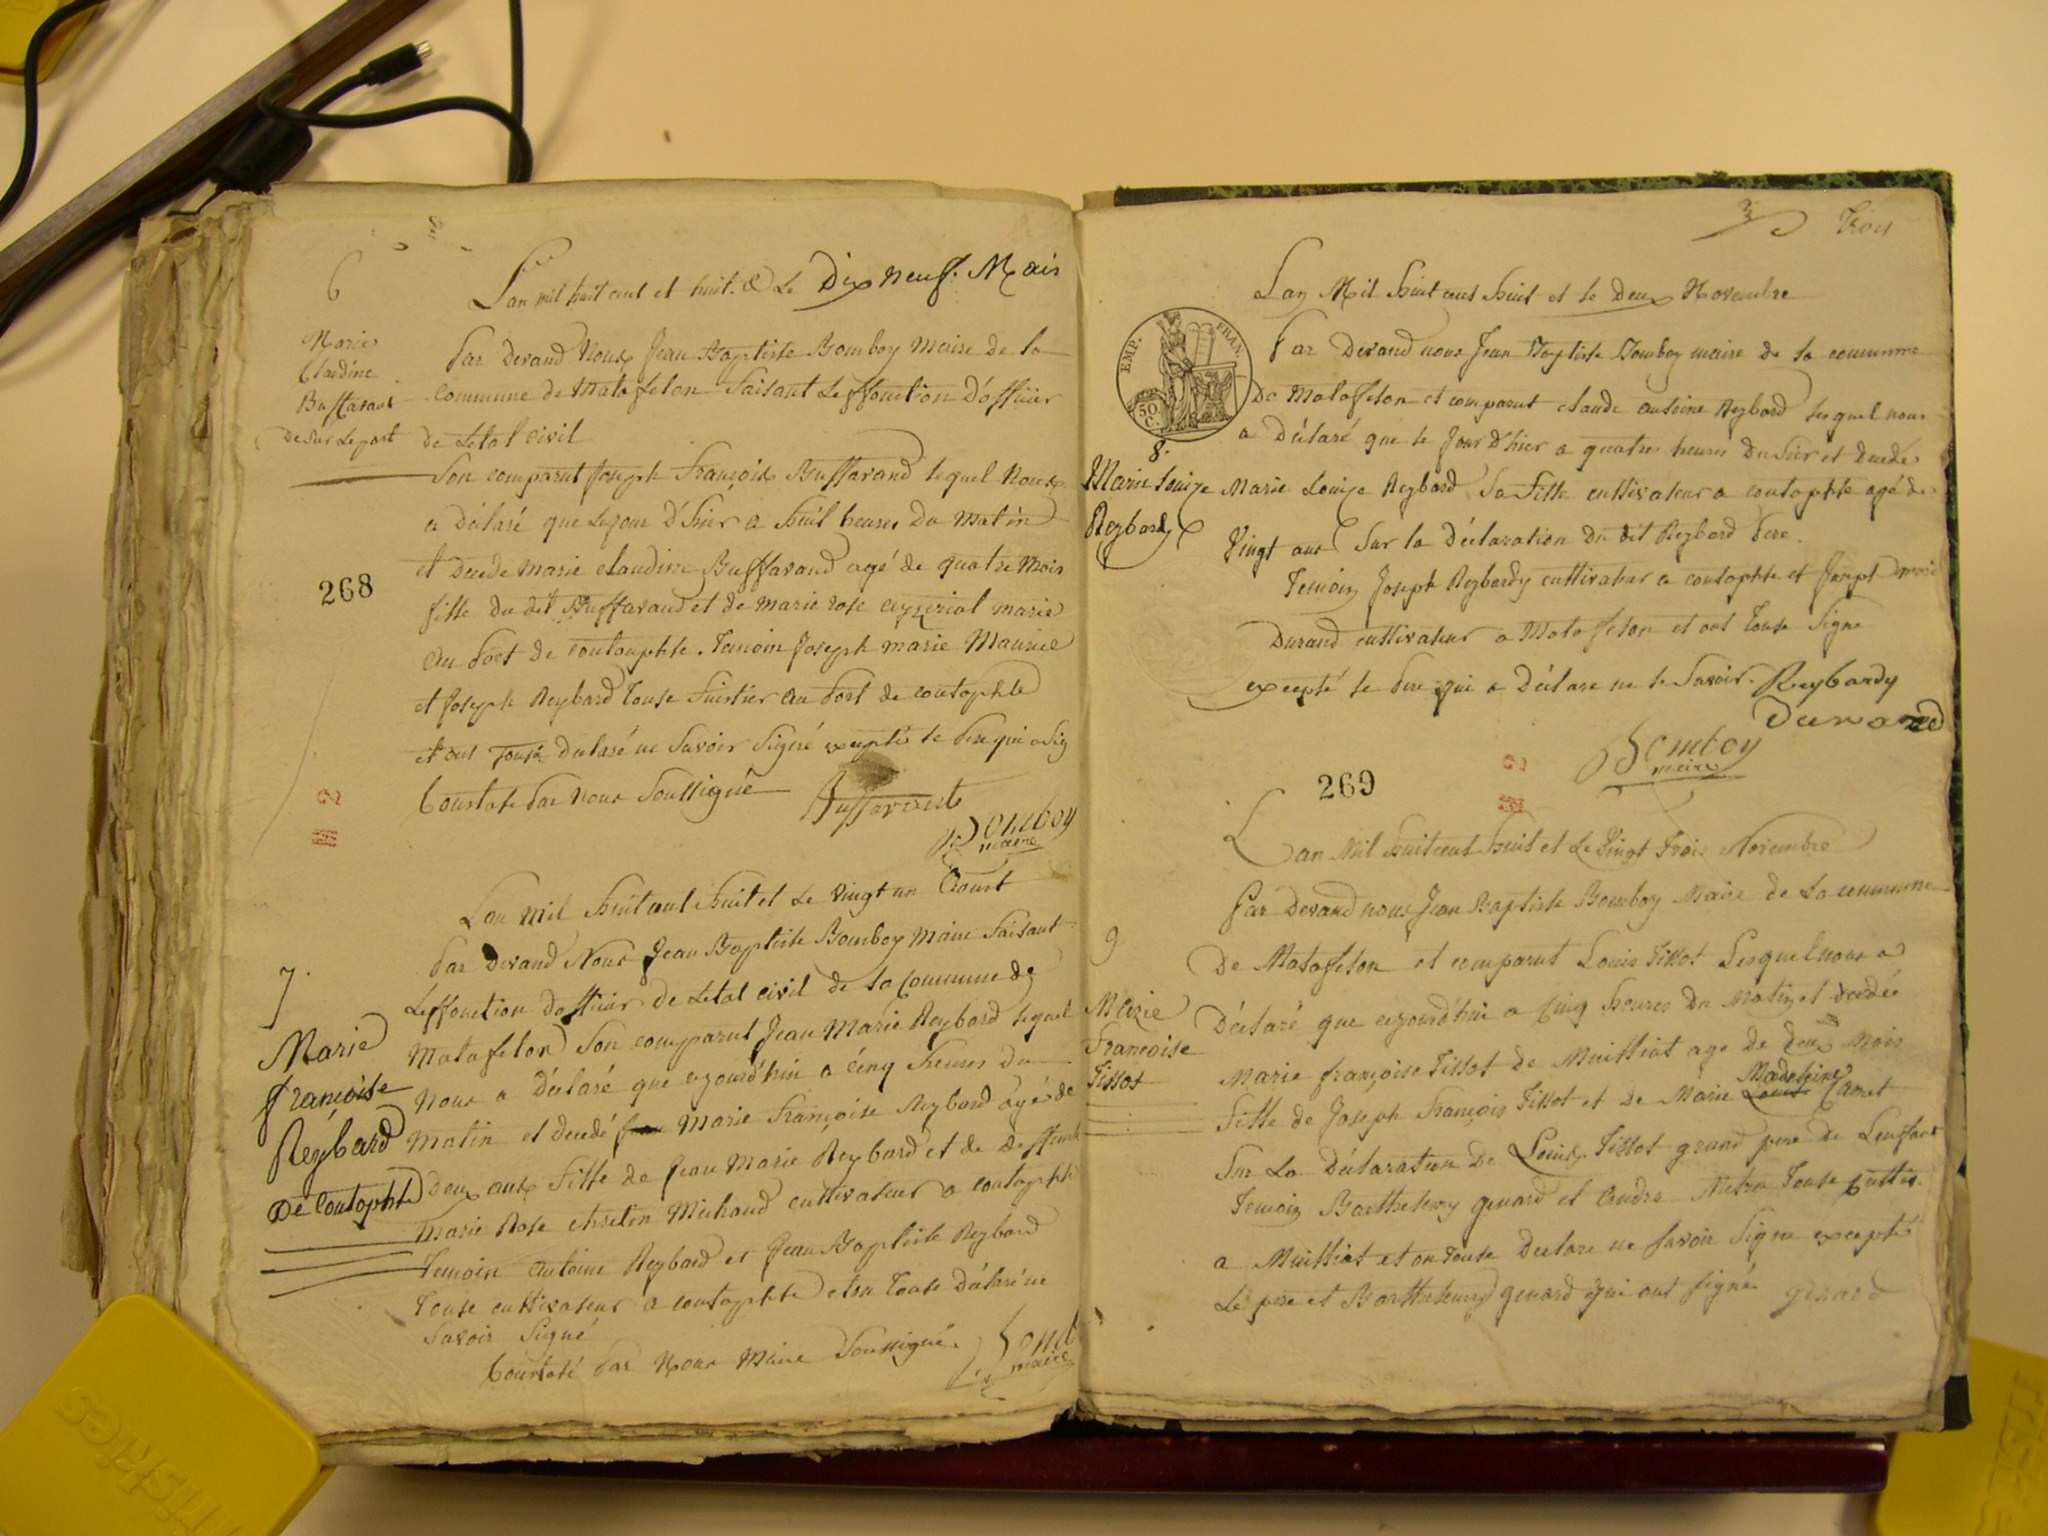 6
Marie
Claudine
Buffavant
De Sur Le port
Lan mil huit cent et huit. & Le Dix neuf. Mais
Par devand Nous Jean Baptiste Bomboy Maire de la
commune de Matafelon faisant Leffonction D'officier
de Letat Civil
Son comparut Joseph François Buffavand lequel Nous
a Déclaré que Le jour D'hier a huit heures Du Matin
et Decede marie claudine Buffavand agé de quatre Mois
fille du dit Buffavaud et de marie rose marié
Au Port de Coutouphle. Temoin Joseph marie Maurice
et Joseph Reybard Touse au Port de coutophle
et ont Touse Declaré ne Savoir Signé excepté le Pere qui a Sig
Constate Par Nous Soussigné
Buffavant
Bomboy
maire
268
7.
Marie
françoise
Reybard
De Coutophle
Lan mil huit cent huit et Le Vingt un Aoust
Par Devand Nous Jean Baptiste Bomboy Maire faisant
Leffonction dofficier de Letat civil de La Commune de
Matafelon Son comparut Jean Marie Reybard lequel
Nous a Déclaré que ajourd'hui a cinq heures du
Matin et decedé Marie Françoise Reybard agé de
Deux ans fille de Jean Marie Reybard et de Deffunte
Marie Rose Michaud cultivateur a coutophle
Temoin Antoine Reybard et Jean Baptiste Reybard
Touse cultivateur a coutophle et on Touse Déclaré ne
Savoir Signé
Constaté Par Nous Maire Soussigné.
maire
3 Trois
EMP. FRAN.
50 C.
Lan Mil huit cent huit et le Deux Novembre
Par Devand nous Jean Baptiste Bomboy maire de la commune
De Matafelon et comparut claude antoine Reybard lequel nous
a Déclaré que le Jour D'hier a quatre heures Du Soir et Decede
8.
Marie Louize
Reybard
Marie Louize Reybard Sa fille cultivateur a coutophle agé de
Vingt ans Sur la Déclaration du dit Reybard Pere.
Temoin Joseph Reybardy cultivateur a coutophle et Joseph Marie
Durand cultivateur a Matafelon et ont Touse Signe
excepté le Pere qui a Déclare ne le Savoir. Reybardy
Durand
Bomboy
maire
269
Lan Mil huit cent huit et Le Vingt Trois Novembre
Par Devand nous Jean Baptiste Bomboy Maire de La commune
9
Marie
Francoise
Tissot
De Matafelon et comparut Louis Tissot Lesquel nous a
Déclaré que ajourd'hui a Cinq heures Du Matin et decedée
Marie françoise Tissot de Muilliat age de deux Mois
Madeleine
fille de Joseph François Tissot et De Marie Louise Camet
Sur La Déclaration De Louis Tissot grand pere de Lenffant
Temoin Barthelemy genard et Andre Touse Cultiv.
a Muilliat et on Touse Declare ne Savoir Signe excepté
Le pere et Barthelemy genard qui ont signé genard